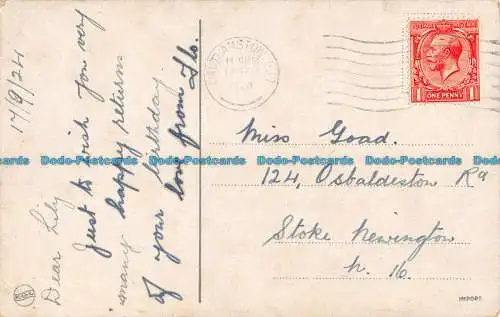 17/9/24
Dear Lily
Just to wish you very
many happy returns
of your birthday
love from Flo.
Miss Goad.
124, Osbaldeston Rd
Stoke Newington
N. 16.
POSTAGE REVENUE
1 ONE PENNY 1
IMPORT
Dodo-Postcards Dodo-Postcards Dodo-Postcards Dodo-Postcards Dodo-Postcards